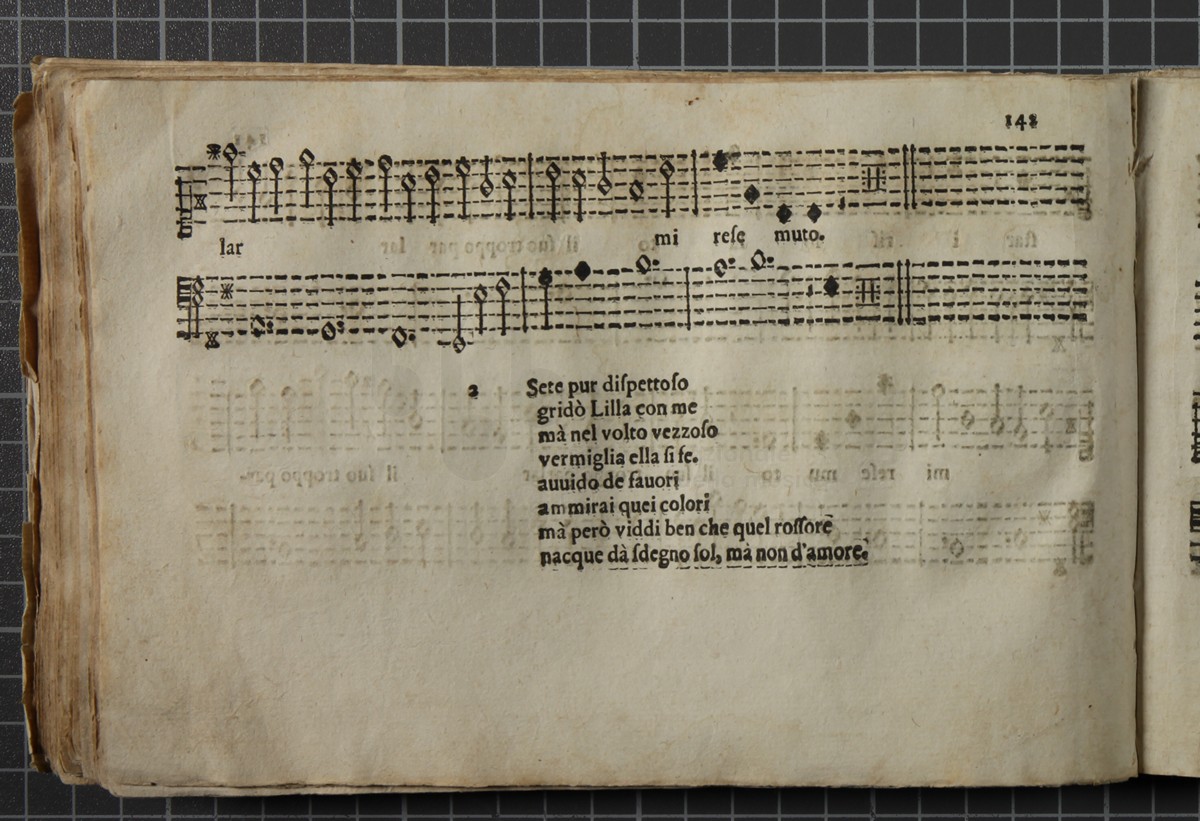 142
lar mi reſe muto.
2 Sete pur diſpettoſo
gridò Lilla con me
mà nel volto vezzoſo
vermiglia ella ſi fe.
auuido de fauori
ammirai quei colori
mà però viddi ben che quel roſſore
nacque dà ſdegno ſol, mà non d'amore.